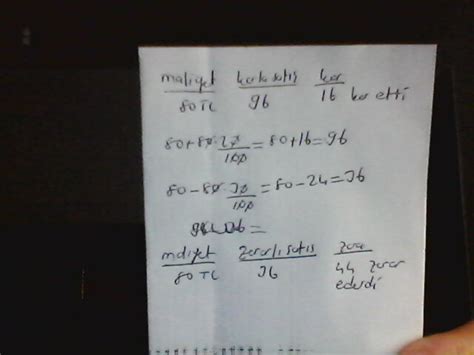 maliyet karlı satış kar
80 TL 96 16 kar etti
80+80 · 20/100 = 80+16 = 96
80-80 · 30/100 = 80-24 = 36
=
maliyet zararlı satış zarar
80 TL 36 44 zarar
ederdi